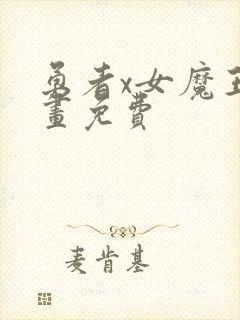 勇者x女魔王
畫免費
麦肯基